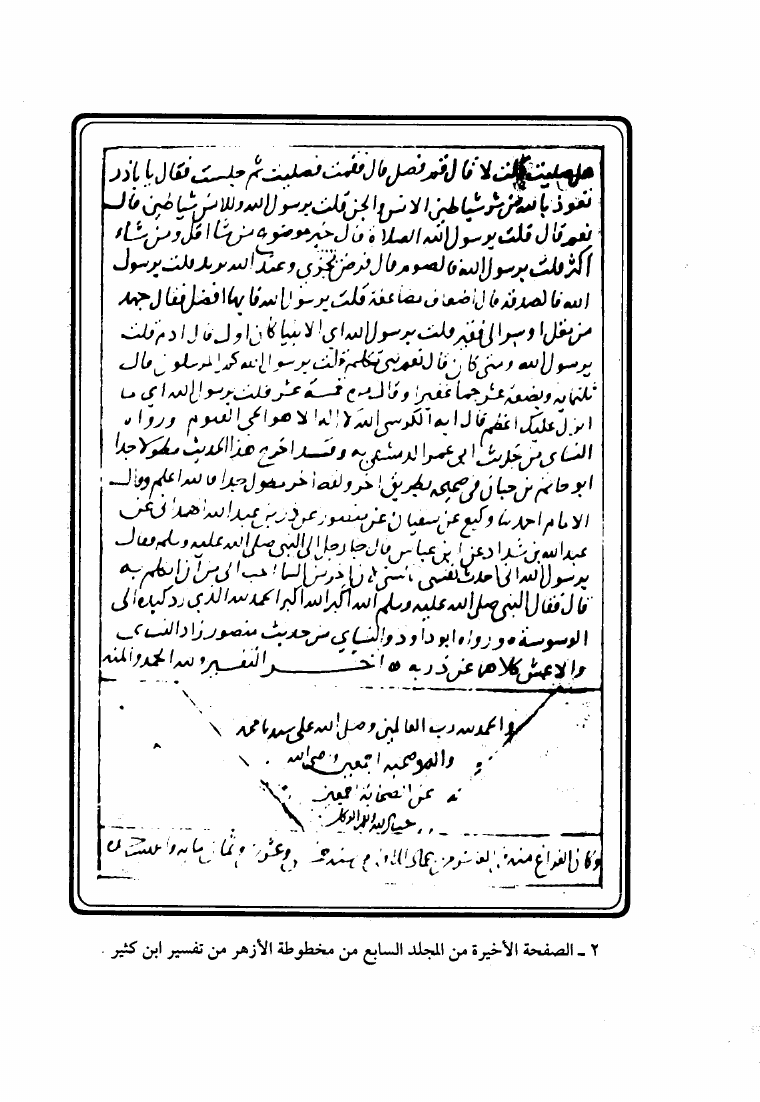 هل صليت قلت لا قال قم فصل قال فقمت فصليت ثم جلست فقال يا باذر
تعوذ بالله من شر شياطين الانس والجن قلت يرسول الله وللانس شياطين قال
نعم قال قلت يرسول الله الصلاة قال خير موضوع من شا اقل ومن شاء
اكثر قلت يرسول الله فالصوم قال فرض مجزي وعند الله مزيد قلت يرسول
الله فالصدقة قال اضعاف مضاعفة قلت يرسول الله فايها افضل فقال جهد
من مقل او سر الى فقير قلت يرسول الله اي الانبيا كان اول قال ادم قلت
يرسول الله ونبي كان قال نعم نبي مكلم قلت يرسول الله كم المرسلون قال
ثلثمايه وبضعة عشر جما غفيرا وقال مرة خمسة عشر قلت يرسول الله اي ما
انزل عليك اعظم قال اية الكرسي الله لا اله الا هو الحي القيوم ورواه
النساي من حديث ابي عمر الدمشقي به وقد اخرج هذا الحديث مطولا جدا
ابو حاتم بن حبان في صحيحه بطريق اخر ولفظ اخر مطول جدا فالله اعلم وقال
الامام احمد ثنا وكيع عن سفيان عن منصور عن ذر بن عبد الله الهمداني عن
عبد الله بن شداد عن ابن عباس قال جا رجل الى النبي صلى الله عليه وسلم فقال
يرسول الله اني احدث نفسي بالشي لان اخر من السما احب الي من ان اتكلم به
قال فقال النبي صلى الله عليه وسلم الله اكبر الله اكبر الحمد لله الذي رد كيده الى
الوسوسة ورواه ابو داود والنساي من حديث منصور زاد النساي
والاعمش كلاهما عن ذر به اخر التفسير ولله الحمد والمنه
والحمد لله رب العالمين وصلى الله على سيدنا محمد
واله وصحبه اجمعين ورضي الله
عن الصحابة اجمعين
حسبنا الله ونعم الوكيل
وكان الفراغ منه في العاشر من جمادى سنة خمس وعشرين وثمان مايه
٢ ـ الصفحة الأخيرة من المجلد السابع من مخطوطة الأزهر من تفسير ابن كثير .